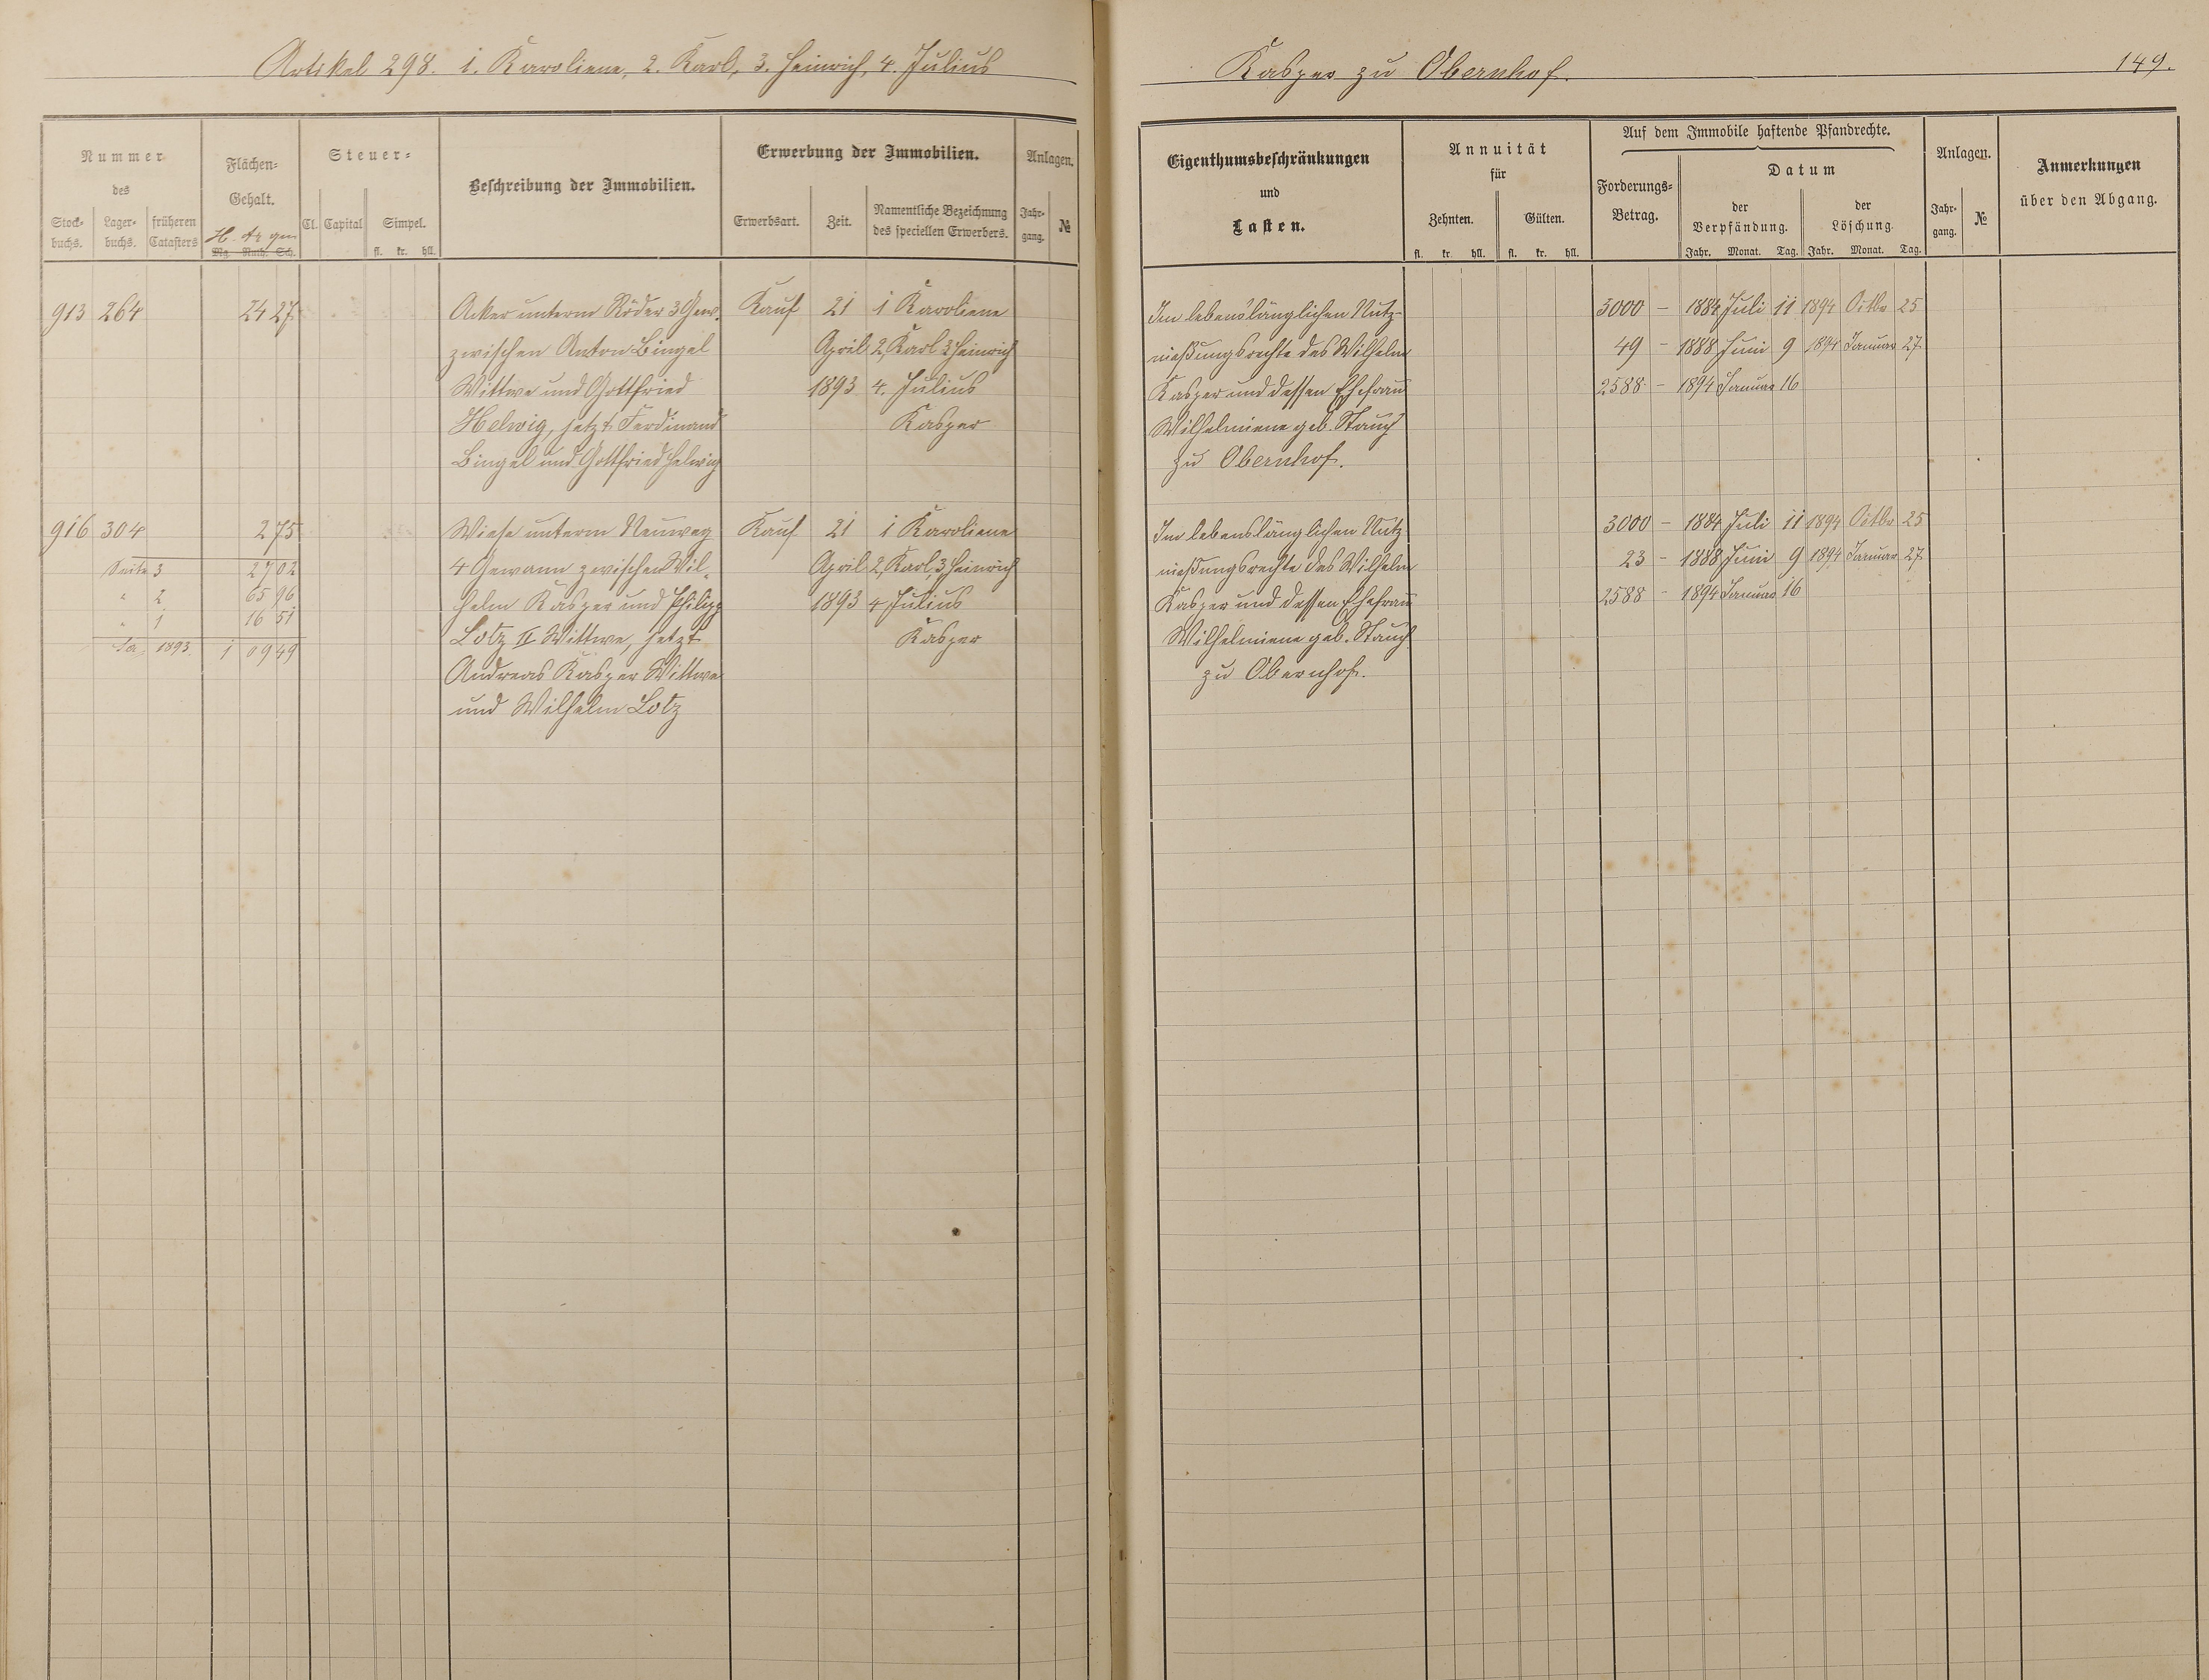 Artikel 298. 1. Karoliene, 2. Karl, 3. Heinrich, 4. Julius
Nummer
des
Stock-
buchs.
Lager-
buchs.
früheren
Catasters
Flächen-
Gehalt.
H. Ar qm
Mg. Ruth. Sch.
Steuer-
Cl. Capital Simpel.
fl. kr. hll.
Beschreibung der Immobilien.
Erwerbung der Immobilien.
Erwerbsart. Zeit.
Namentliche Bezeichnung
des speciellen Erwerbers.
Anlagen.
Jahr-
gang.
№
913 264 24 27 Acker unterm Röder 3 Gew. Kauf 21 1 Karoliene
zwischen Anton Bingel April 2, Karl 3 Heinrich
Wittwe und Gottfried 1893 4. Julius
Helwig, jetzt Ferdinand Kasper
Bingel und Gottfried Helwig
916 304 2 75 Wiese unterm Neuweg Kauf 21 1 Karoliene
Seite 3 27 02 4 Gewann zwischen Wil- April 2, Karl, 3, Heinrich
" 2 65 96 helm Kasper und Philipp 1893 4 Julius
" 1 16 51 Lotz II Wittwe, jetzt Kasper
Sa 1893. 1 09 49
Andreas Kasper Wittwe
und Wilhelm Lotz
Kasper zu Obernhof. 149.
Eigenthumsbeschränkungen
und
Lasten.
Annuität
für
Zehnten. Gülten.
fl. kr. hll. fl. kr. hll.
Auf dem Immobile haftende Pfandrechte.
Forderungs-
Betrag.
Datum
der
Verpfändung.
der
Löschung.
Jahr. Monat. Tag. Jahr. Monat. Tag.
Anlagen.
Jahr-
gang.
№
Anmerkungen
über den Abgang.
Im lebenslänglichen Nutz- 3000 – 1884 Juli 11 1894 Octbr 25
nießungsrechte des Wilhelm 49 – 1888 Juni 9 1894 Januar 27
Kasper und dessen Ehefrau 2588 – 1894 Januar 16
Wilhelmiene geb. Stauch
zu Obernhof.
Im lebenslänglichen Nutz- 3000 – 1884 Juli 11 1894 Octbr 25
nießungsrechte des Wilhelm 23 – 1888 Juni 9 1894 Januar 27
Kasper und dessen Ehefrau 2588 – 1894 Januar 16
Wilhelmiene geb. Stauch
zu Obernhof.